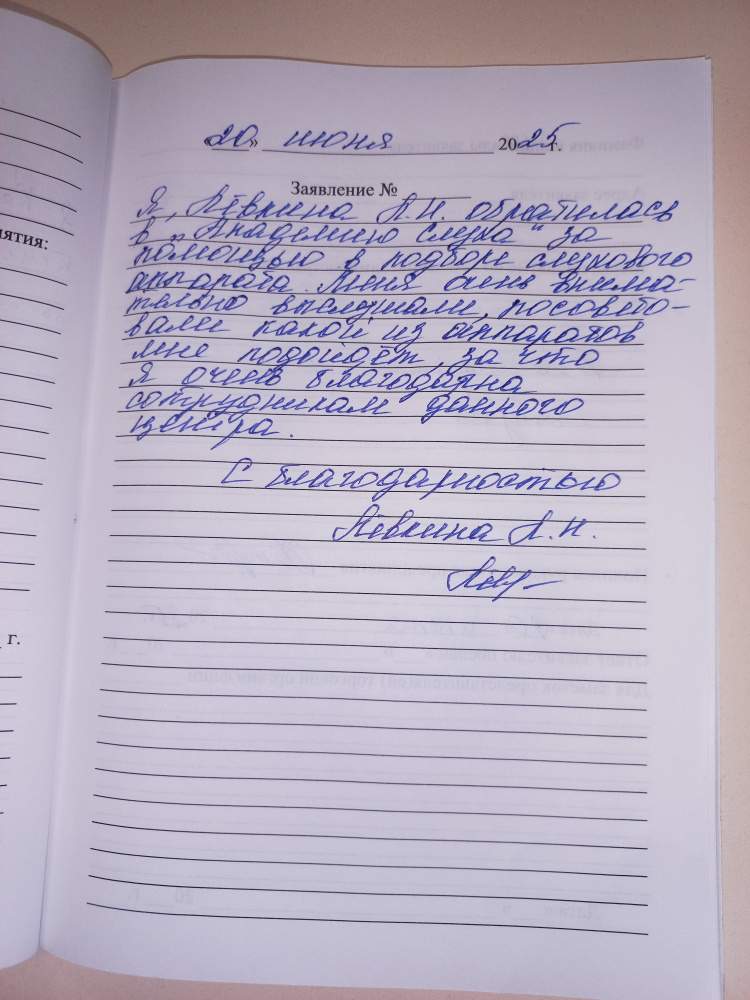 «20» июня 2025 г.
Заявление №
Я, Лёвкина Л.Н. обратилась
в „Академию слуха" за
помощью в подборе слухового
аппарата. Меня очень внима-
тельно выслушали, посовето-
вали какой из аппаратов
мне подойдёт, за что
я очень благодарна
сотрудникам данного
центра.
С благодарностью
Лёвкина Л.Н.
ятия:
г.